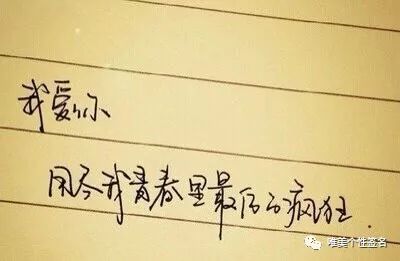 我爱你
用尽我青春里最后的疯狂.
唯美个性签名